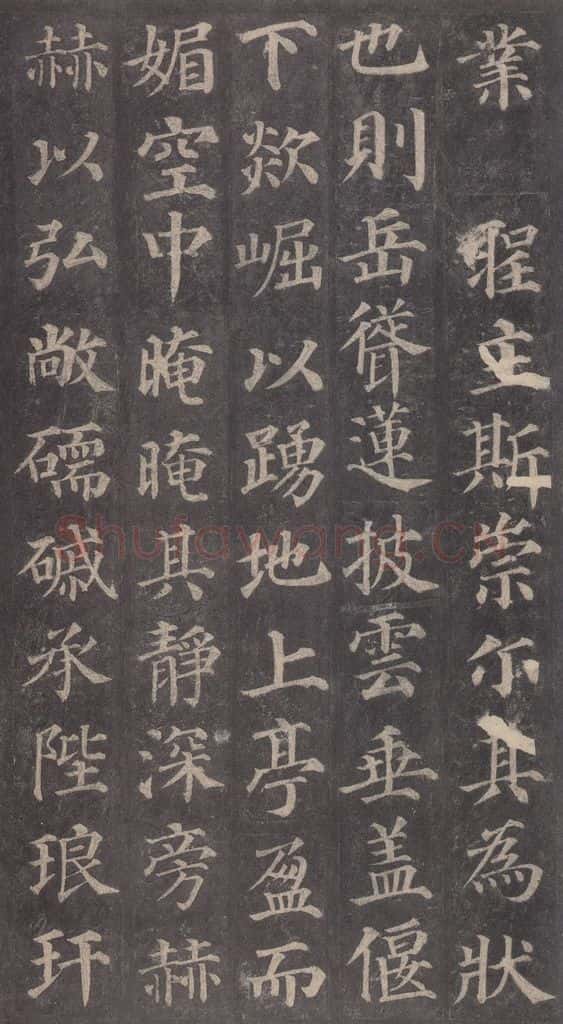 業　聖主斯崇尒其為狀
也則岳聳蓮披雲垂盖偃
下欻崛以踴地上亭盈而
媚空中晻晻其靜深旁赫
赫以弘敞礝磩承陛琅玕
Shufawang.cn